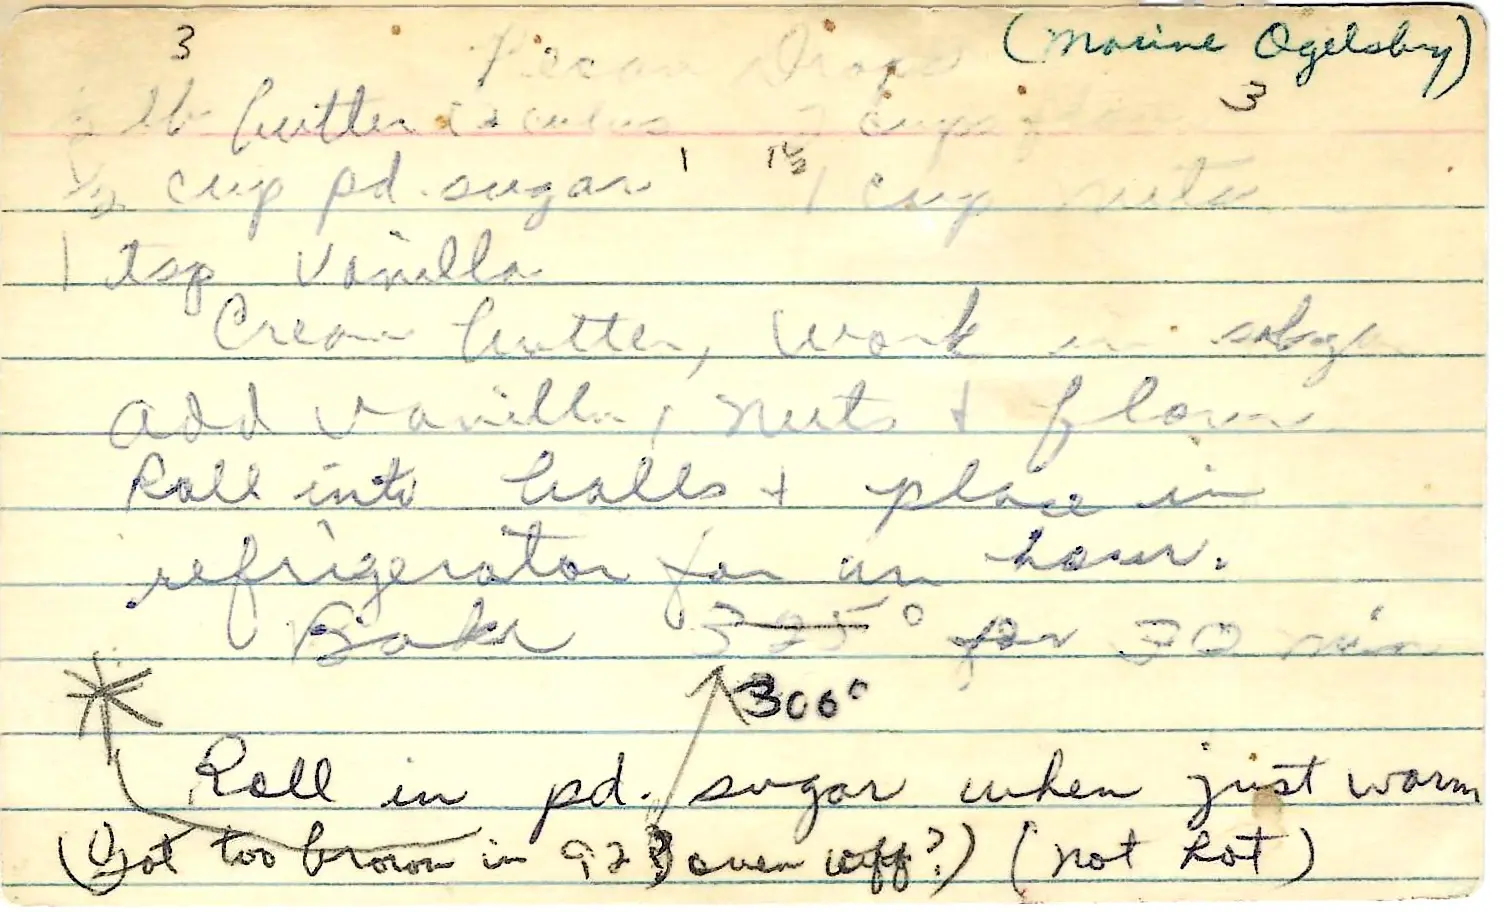 3 Pecan Drops (Maxine Ogelsby)
½ lb butter 2 cups flour 3
½ cup pd. sugar 1 1½ 1 cup nuts
1 tsp Vanilla
Cream butter, work in sugar
add vanilla, nuts + flour
Roll into balls + place in
refrigerator for an hour.
Bake 325° for 30 min
300°
Roll in pd. sugar when just warm
(Got too brown in oven off?) (not hot)